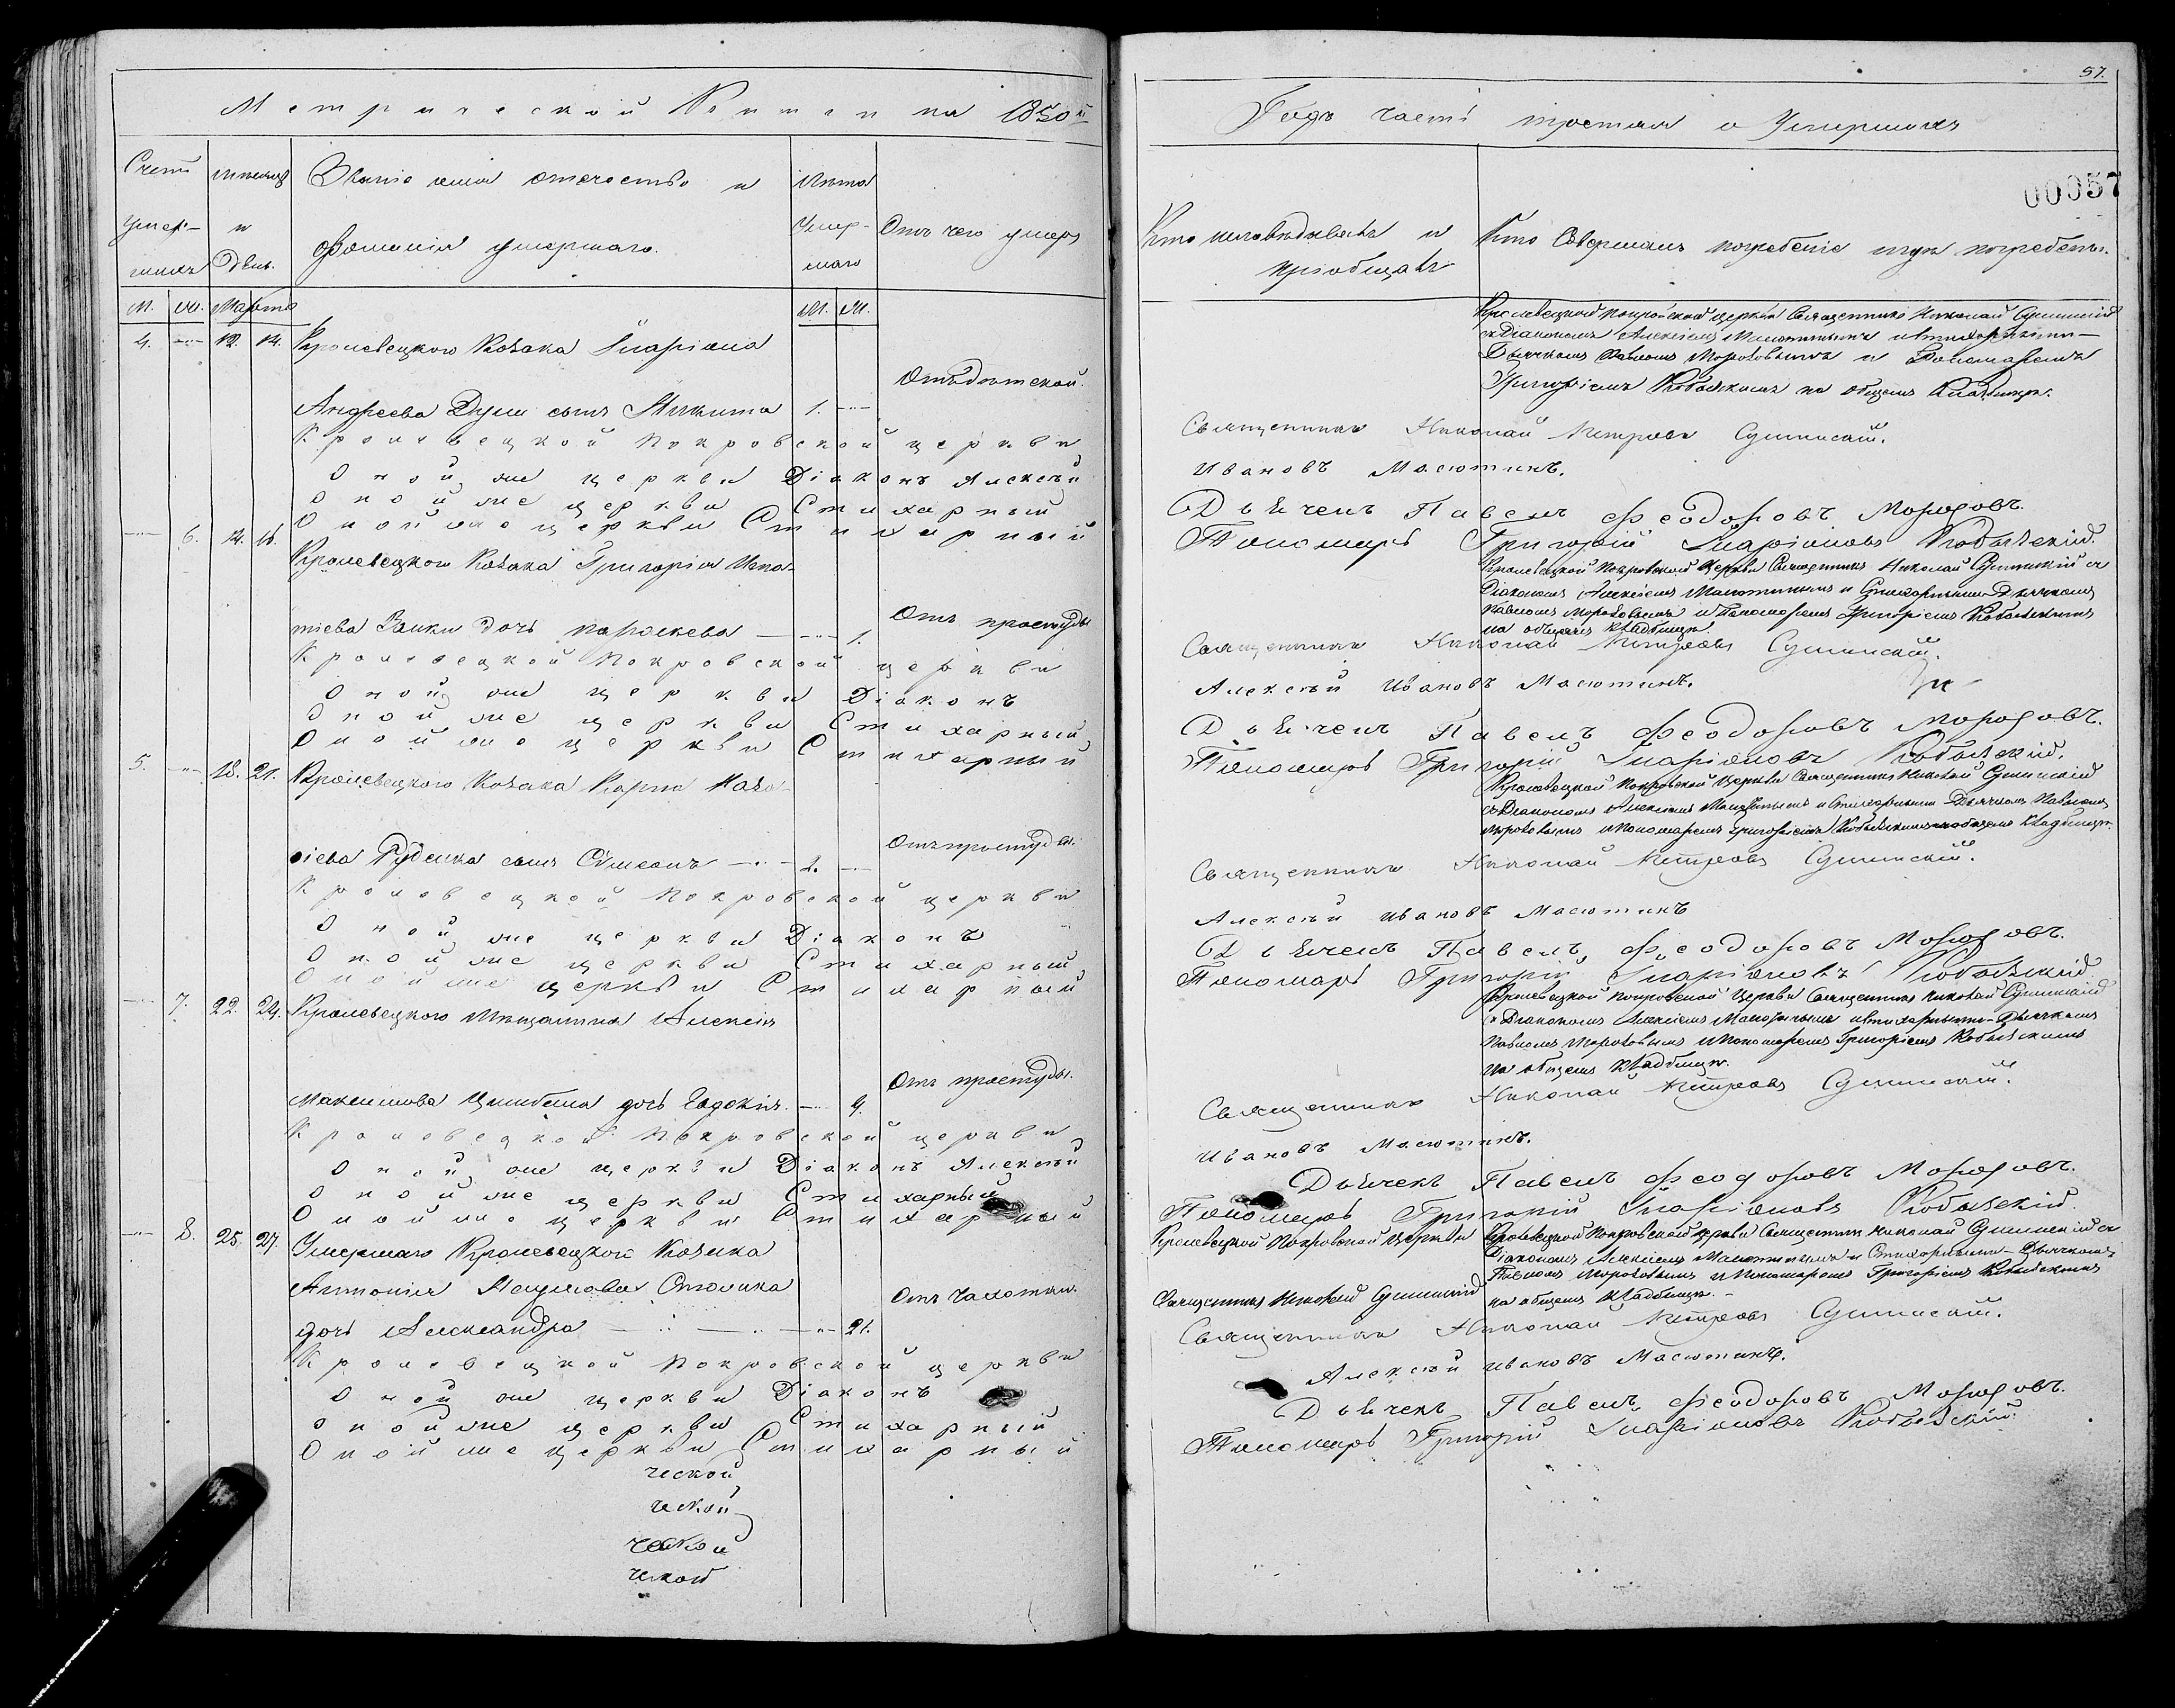 Метрической Книги на 1850й
Счетъ умер-шихъ
Мѣсяцъ и День.
Званіе имя отечество и фамилія умершаго.
Лѣта Умер-шаго
Отъ чего умеръ
М. Ж. Марта М. Ж.
4. 12. 14. Кролевецкого Козака Иларіона
Андреева сынъ Никита 1.
Кролевецкой Покровской церкви
Оной же церкви Діаконъ Алексѣй
Оной же церкви Стихарный
Оной же церкви Стихарный
6. 14. 16. Кролевецкого Козака Григорія Игна-
тіева Заики дочь Параскева 1.
Отъ простуды
Кролевецкой Покровской церкви
Оной же церкви Діаконъ
Оной же церкви Стихарный
Оной же церкви Стихарный
5. 18. 21. Кролевецкого Козака Карпа Наза-
ріева Руденка сынъ Сѵмеонъ
Отъ простуды.
Кролевецкой Покровской церкви
Оной же церкви Діаконъ
Оной же церкви Стихарный
Оной же церкви Стихарный
7. 22. 24. Кролевецкого Мѣщанина Алексія
Максимова дочь Евдокія
Отъ простуды.
Кролевецкой Покровской церкви
Оной же церкви Діаконъ Алексѣй
Оной же церкви Стихарный
Оной же церкви Стихарный
8. 25. 27. Умершаго Кролевецкого Козака
Антонія
дочь Александра 21.
Отъ чахотки.
Кролевецкой Покровской церкви
Оной же церкви Діаконъ
Оной же церкви Стихарный
Оной же церкви Стихарный
ческой
ческой
ческой
ческой
57.
Годъ часть третая о Умершихъ
00057
Кто исповѣдывалъ и пріобщалъ
Кто Совершалъ погребеніе и гдѣ погребены.
Кролевецкой Покровской церкви Священникъ Николай Сушинскій
съ Діакономъ Алексіемъ Масютинымъ и Стихарными-
Дьячкомъ Павломъ Морозовымъ и Пономаремъ
Григоріемъ на общемъ Кладбищѣ.
Священникъ Николай Петровъ
Ивановъ Масютинъ.
Дьячекъ Павелъ Феодоровъ Морозовъ.
Пономарь Григорій Иларіоновъ
Кролевецкой Покровской Церкви Священникъ Николай съ
Діакономъ Алексіемъ Масютинымъ и Стихарными-Дьячкомъ
Павломъ Морозовымъ и Пономаремъ Григоріемъ
на общемъ кладбищѣ.
Священникъ Николай Петровъ
Алексѣй Ивановъ Масютинъ.
Дьячекъ Павелъ Феодоровъ Морозовъ.
Пономарь Григорій Иларіоновъ
Кролевецкой Покровской Церкви Священникъ Николай
съ Діакономъ Алексіемъ Масютинымъ и Стихарными Дьячкомъ Павломъ
Морозовымъ и Пономаремъ Григоріемъ на общемъ кладбищѣ.
Священникъ Николай Петровъ
Алексѣй Ивановъ Масютинъ
Дьячекъ Павелъ Феодоровъ Морозовъ.
Пономарь Григорій Иларіоновъ
Кролевецкой Покровской Церкви Священникъ Николай
съ Діакономъ Алексіемъ Масютинымъ и Стихарными-Дьячкомъ
Павломъ Морозовымъ и Пономаремъ Григоріемъ
на общемъ кладбищѣ.
Священникъ Николай Петровъ
Ивановъ Масютинъ.
Дьячекъ Павелъ Феодоровъ Морозовъ.
Пономарь Григорій Иларіоновъ
Кролевецкой Покровской Церкви
Священникъ Николай
Кролевецкой Покровской церкви Священникъ Николай съ
Діакономъ Алексіемъ Масютинымъ и Стихарными-Дьячкомъ
Павломъ Морозовымъ и Пономаремъ Григоріемъ
на общемъ кладбищѣ.
Священникъ Николай Петровъ
Алексѣй Ивановъ Масютинъ.
Дьячекъ Павелъ Феодоровъ Морозовъ.
Пономарь Григорій Иларіоновъ